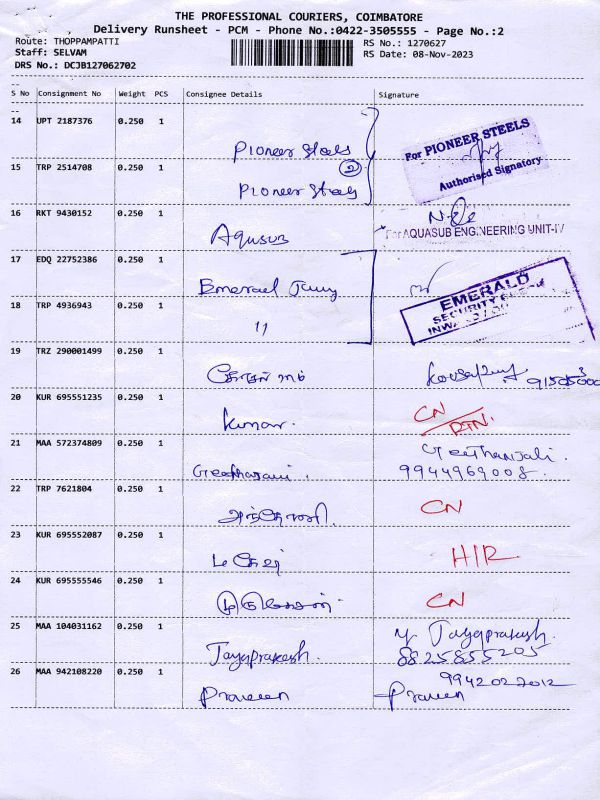 THE PROFESSIONAL COURIERS, COIMBATORE
Delivery Runsheet - PCM - Phone No.:0422-3505555 - Page No.:2
Route: THOPPAMPATTI
Staff: SELVAM
DRS No.: DCJB127062702
RS No.: 1270627
RS Date: 08-Nov-2023
S No Consignment No Weight PCS Consignee Details Signature
14 UPT 2187376 0.250 1 Pioneer Steels
For PIONEER STEELS
Authorised Signatory
15 TRP 2514708 0.250 1 Pioneer Steels
2
16 RKT 9430152 0.250 1 Aqusub
For AQUASUB ENGINEERING UNIT-IV
17 EDQ 22752386 0.250 1
EMERALD
SECURITY
18 TRP 4936943 0.250 1 11
19 TRZ 290001499 0.250 1
20 KUR 695551235 0.250 1 Kumar. CN/RTN.
21 MAA 572374809 0.250 1 Geethanjali
9944969008.
22 TRP 7621804 0.250 1 CN
23 KUR 695552087 0.250 1 H/R
24 KUR 695555546 0.250 1 CN
25 MAA 104031162 0.250 1 Jayaprakash. Jayaprakash.
8825855205
26 MAA 942108220 0.250 1 Praveen Praveen
9942022012